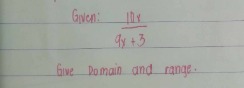 Given: 10x
9x + 3
Give Domain and range.